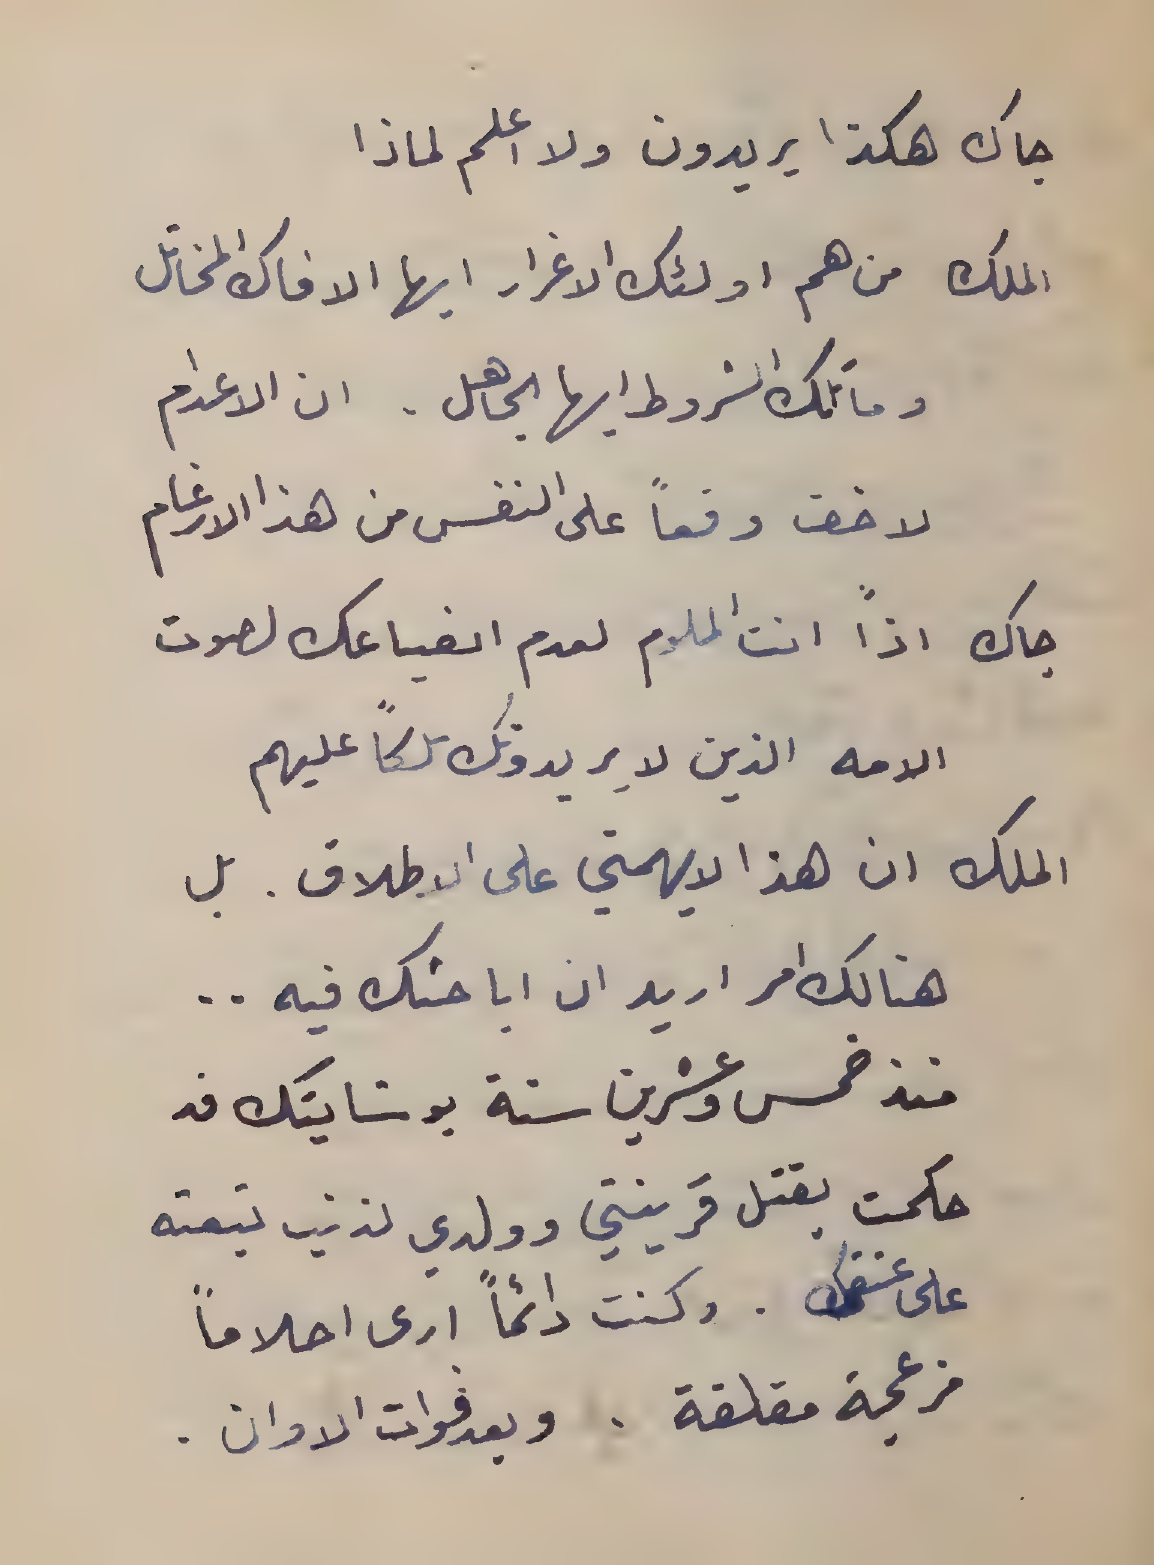 جاك هكذا يريدون ولا اعلم لماذا
الملك من هم اولئك الاغرار ايها الافاك المخاتل
وما تلك الشروط ايها الجاهل . ان الاعدام
لاخف وقعاً على النفس من هذا الارغام
جاك اذاً انت الملوم لعدم انصياعك لصوت
الامه الذين لا يريدونك ملكاً عليهم
الملك ان هذا لا يهمني على الاطلاق . بل
هنالك امر اريد ان اباحثك فيه ..
منذ خمس وعشرين سنة بوشايتك قد
حكمت بقتل قرينتي وولدي لذنب تبعته
على عنقك . وكنت دائماً ارى احلاماً
مزعجة مقلقة . وبعد فوات الاوان .